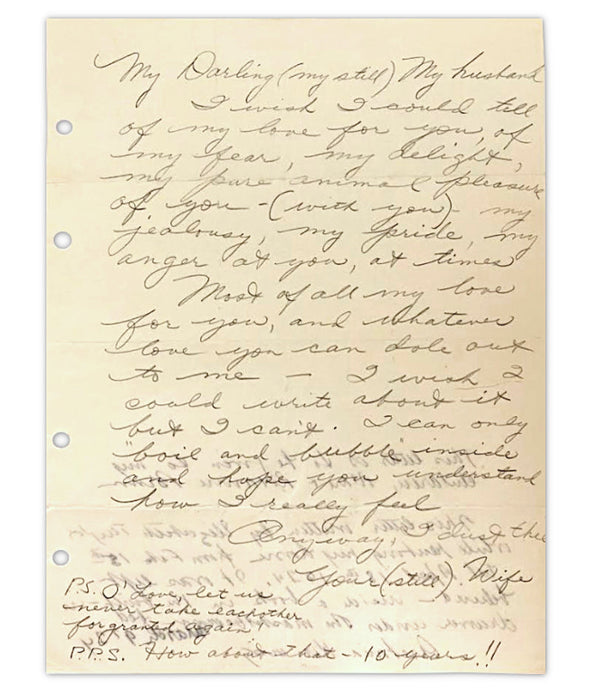 My Darling (my still) My husband
I wish I could tell
of my love for you, of
my fear, my delight,
my pure animal pleasure
of you - (with you) - my
jealousy, my pride, my
anger at you, at times
Most of all my love
for you, and whatever
love you can dole out
to me — I wish I
could write about it
but I can't. I can only
"boil and bubble" inside
and hope you understand
how I really feel
Anyway, I lust thee
Your (still) Wife
P.S. O' Love, let us
never take eachother
for granted again
P.P.S. How about that - 10 years!!